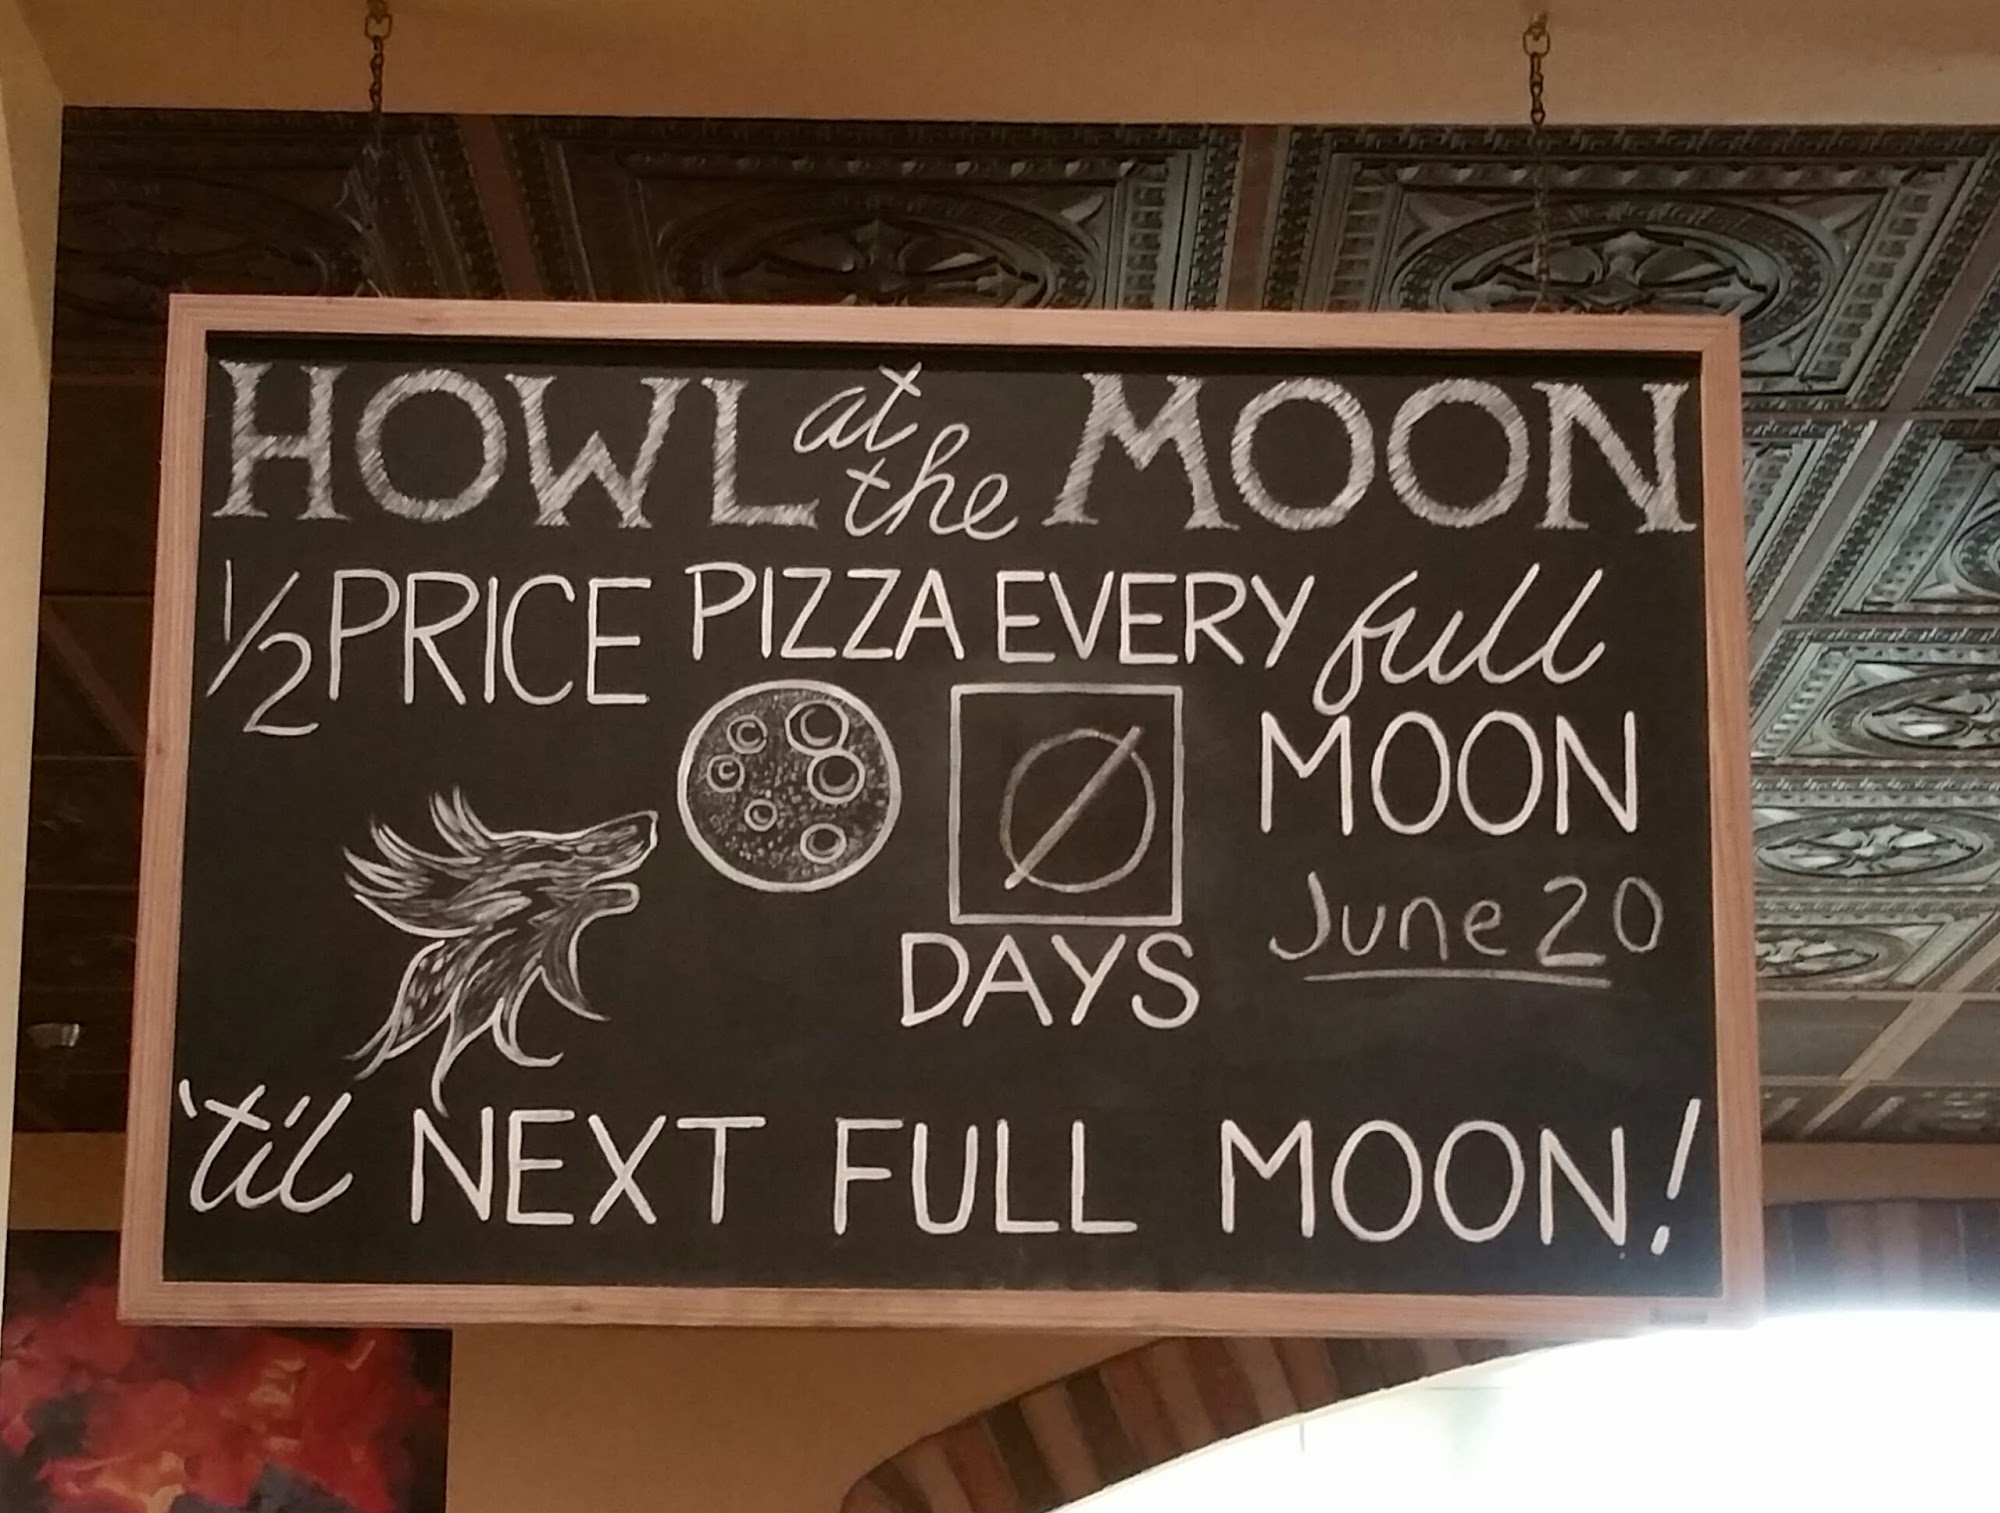 HOWL at the MOON
½ PRICE PIZZA EVERY full MOON
June 20
0 DAYS
'til NEXT FULL MOON!